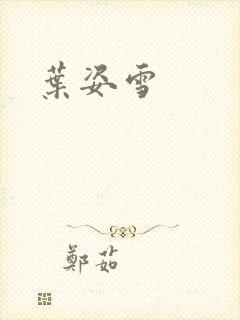 葉姿雪
鄭茹